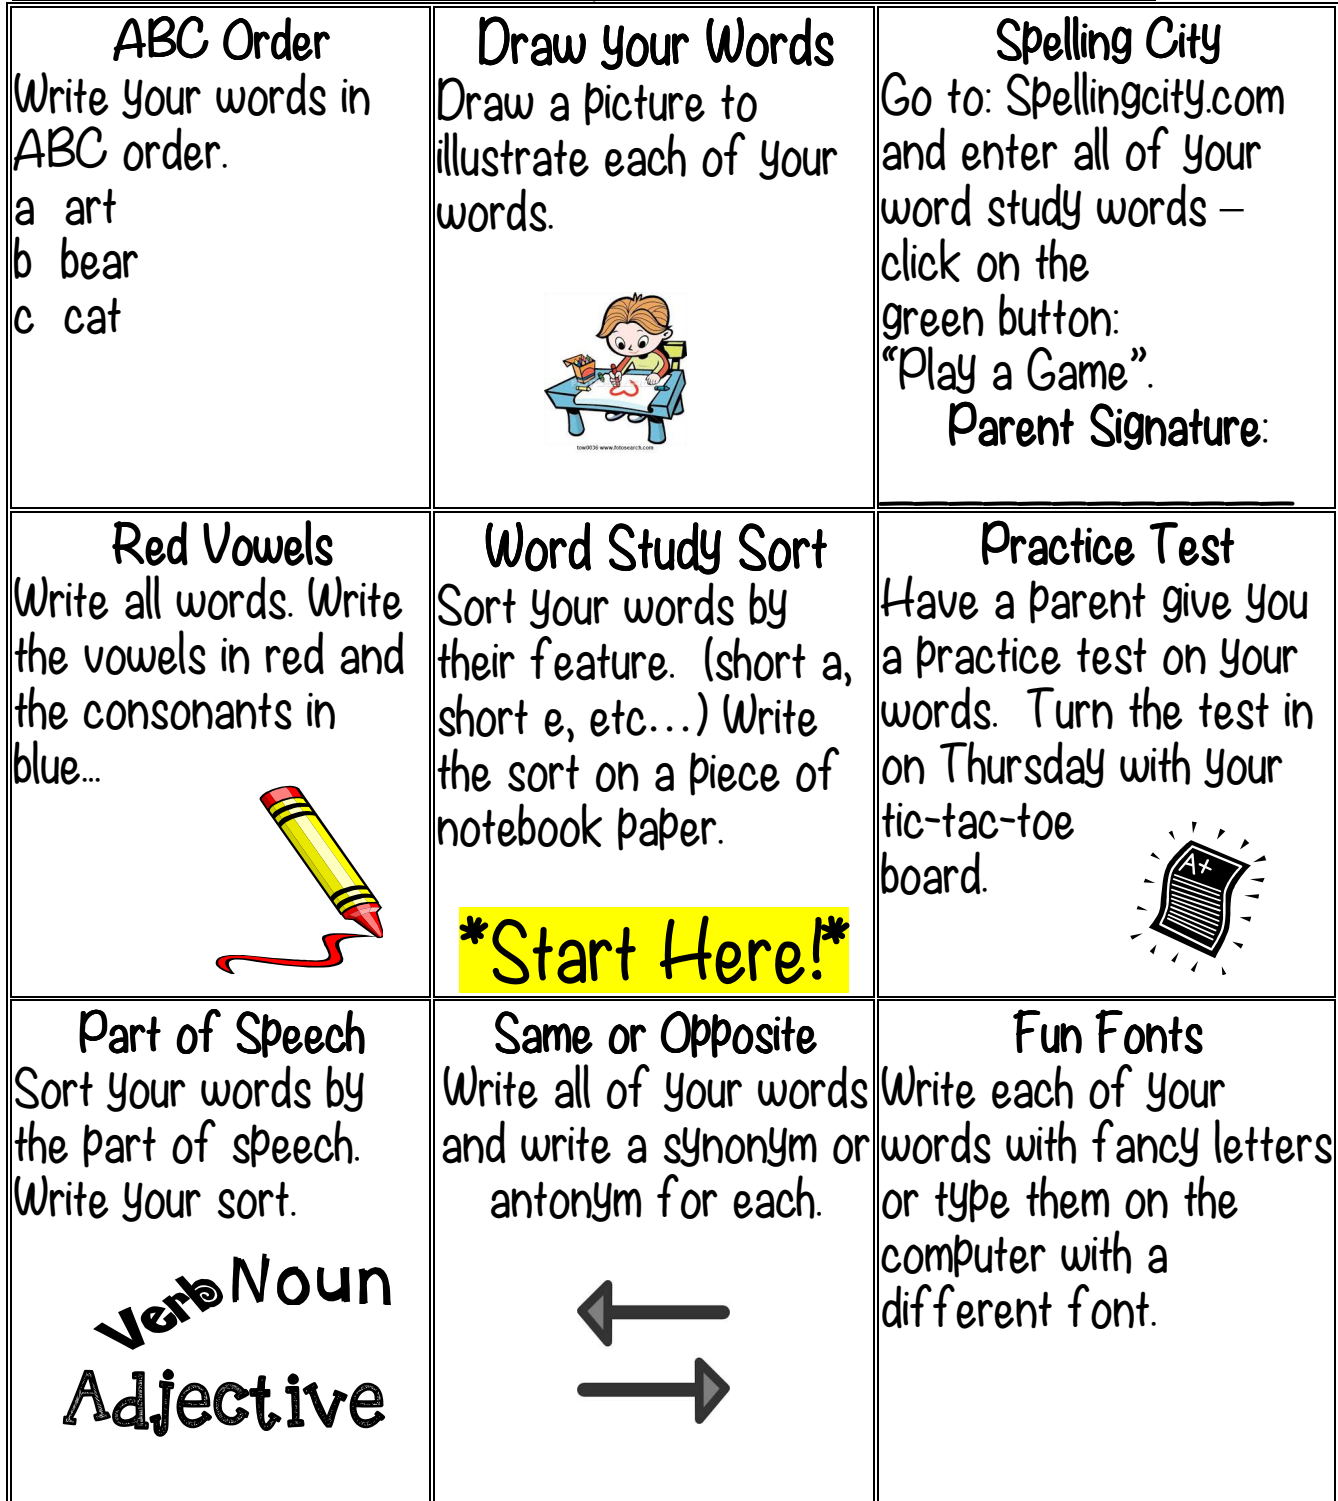 ABC Order
Write your words in
ABC order.
a art
b bear
c cat
Draw your Words
Draw a picture to
illustrate each of your
words.
tow0036 www.fotosearch.com
Spelling City
Go to: Spellingcity.com
and enter all of your
word study words –
click on the
green button:
“Play a Game”.
Parent Signature:
Red Vowels
Write all words. Write
the vowels in red and
the consonants in
blue...
Word Study Sort
Sort your words by
their feature. (short a,
short e, etc...) Write
the sort on a piece of
notebook paper.
*Start Here!*
Practice Test
Have a parent give you
a practice test on your
words. Turn the test in
on Thursday with your
tic-tac-toe
board.
A+
Part of Speech
Sort your words by
the part of speech.
Write your sort.
Verb Noun
Adjective
Same or Opposite
Write all of your words
and write a synonym or
antonym for each.
Fun Fonts
Write each of your
words with fancy letters
or type them on the
computer with a
different font.